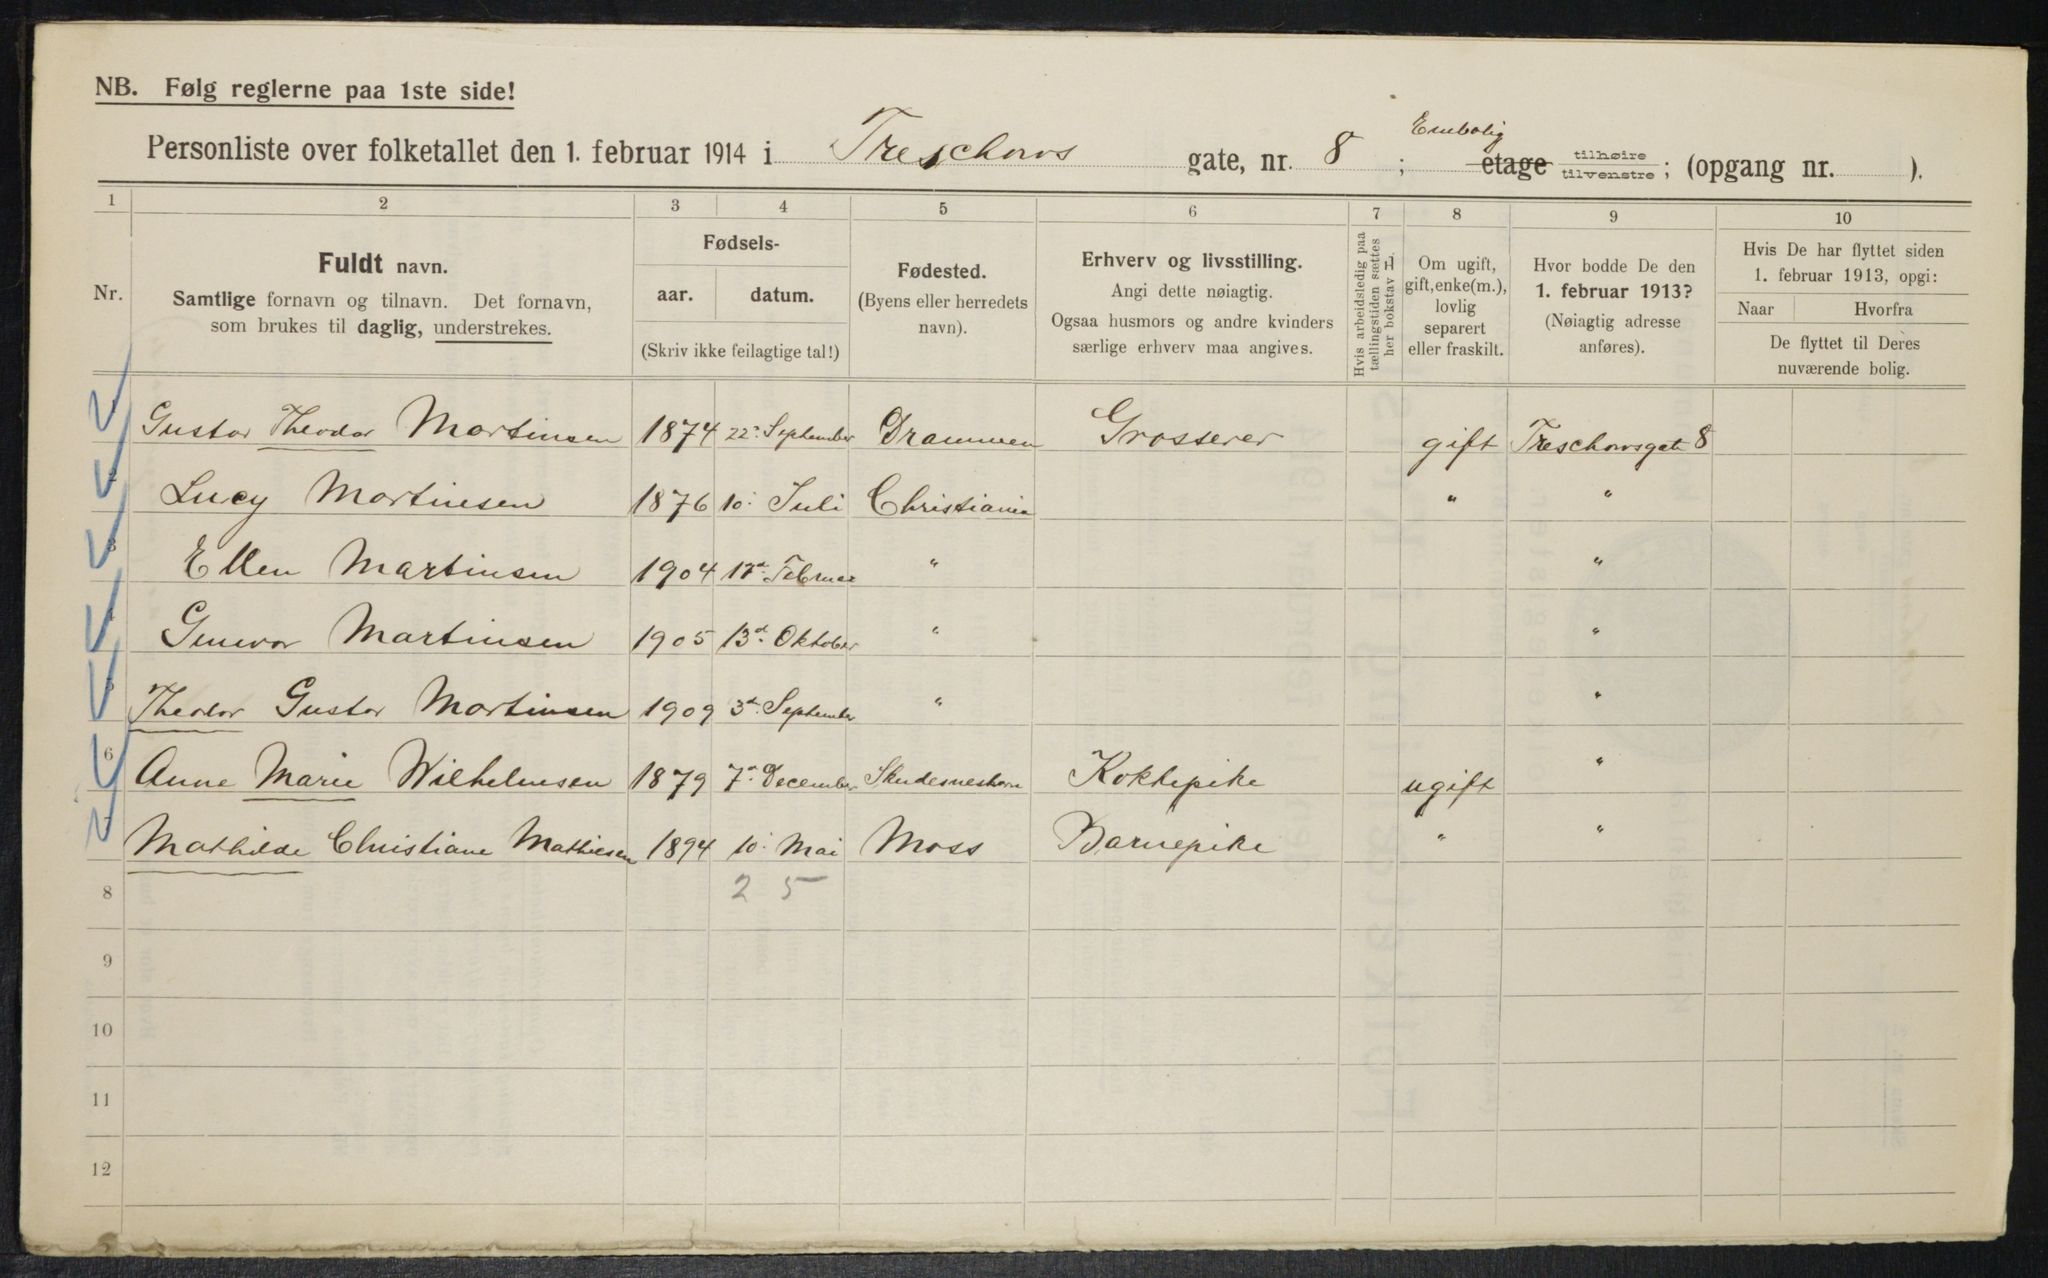 NB. Følg reglerne paa 1ste side!
Personliste over folketallet den 1. februar 1914 i Treschows gate, nr. 8 ; Enebolig etage tilhøire tilvenstre ; (opgang nr. ).
1 2 3 4 5 6 7 8 9 10
Nr.
Fuldt navn.
Samtlige fornavn og tilnavn. Det fornavn,
som brukes til daglig, understrekes.
Fødsels-
aar. datum.
(Skriv ikke feilagtige tal!)
Fødested.
(Byens eller herredets
navn).
Erhverv og livsstilling.
Angi dette nøiagtig.
Ogsaa husmors og andre kvinders
særlige erhverv maa angives.
Hvis arbeidsledig paa
tællingstiden sættes
her bokstav L
Om ugift,
gift, enke(m.),
lovlig
separert
eller fraskilt.
Hvor bodde De den
1. februar 1913?
(Nøiagtig adresse
anføres).
Hvis De har flyttet siden
1. februar 1913, opgi:
Naar Hvorfra
De flyttet til Deres
nuværende bolig.
Gustav Theodor Martinsen 1874 22. September Drammen Grosserer gift Treschowsgate 8
2 Lucy Martinsen 1876 10. Juli Christiania " "
3 Ellen Martinsen 1904 17d. Februar " "
4 Gunvor Martinsen 1905 13d. Oktober " "
5 Theodor Gustav Martinsen 1909 3d. September " "
6 Anne Marie Wilhelmsen 1879 7d. December Skudesneshavn Kokkepike ugift "
7 Mathilde Christiane Mathiesen 1894 10. Mai Moss Barnepike " "
8 2 5
9
10
11
12